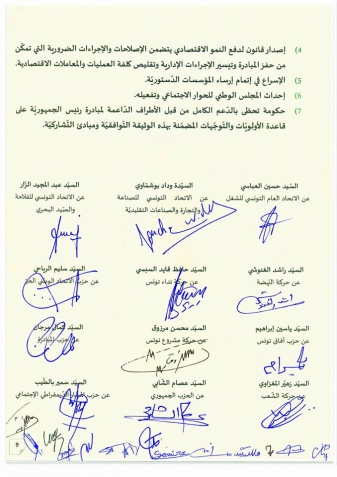 4) إصدار قانون لدفع النمو الاقتصادي يتضمن الإصلاحات والإجراءات الضرورية التي تمكّن
من حفز المبادرة وتيسير الإجراءات الإدارية وتقليص كلفة العمليات والمعاملات الاقتصادية.
5) الإسراع في إتمام إرساء المؤسسات الدّستوريّة.
6) إحداث المجلس الوطني للحوار الاجتماعي وتفعيله.
7) حكومة تحظى بالدّعم الكامل من قبل الأطراف الدّاعمة لمبادرة رئيس الجمهوريّة على
قاعدة الأولويّات والتوجّهات المضمّنة بهذه الوثيقة التّوافقيّة ومبادئ التّشاركيّة.
السيّد حسين العباسي
عن الاتحاد العام التونسي للشغل
السيّدة وداد بوشماوي
عن الاتحاد التونسي للصناعة
والتجارة والصناعات التقليديّة
السيّد عبد المجيد الزار
عن الاتحاد التونسي للفلاحة
والصّيد البحري
السيّد راشد الغنوشي
عن حركة النهضة
السيّد حافظ قايد السبسي
عن حركة نداء تونس
السيّد سليم الرياحي
عن حزب الاتحاد الوطني الحرّ
السيّد ياسين إبراهيم
عن حزب آفاق تونس
السيّد محسن مرزوق
عن حركة مشروع تونس
السيّد كمال مرجان
عن حزب المبادرة
السيّد زهيّر المغزاوي
عن حركة الشعب
السيّد عصام الشابي
عن الحزب الجمهوري
السيّد سمير بالطيب
عن حزب المسار الديمقراطي الاجتماعي